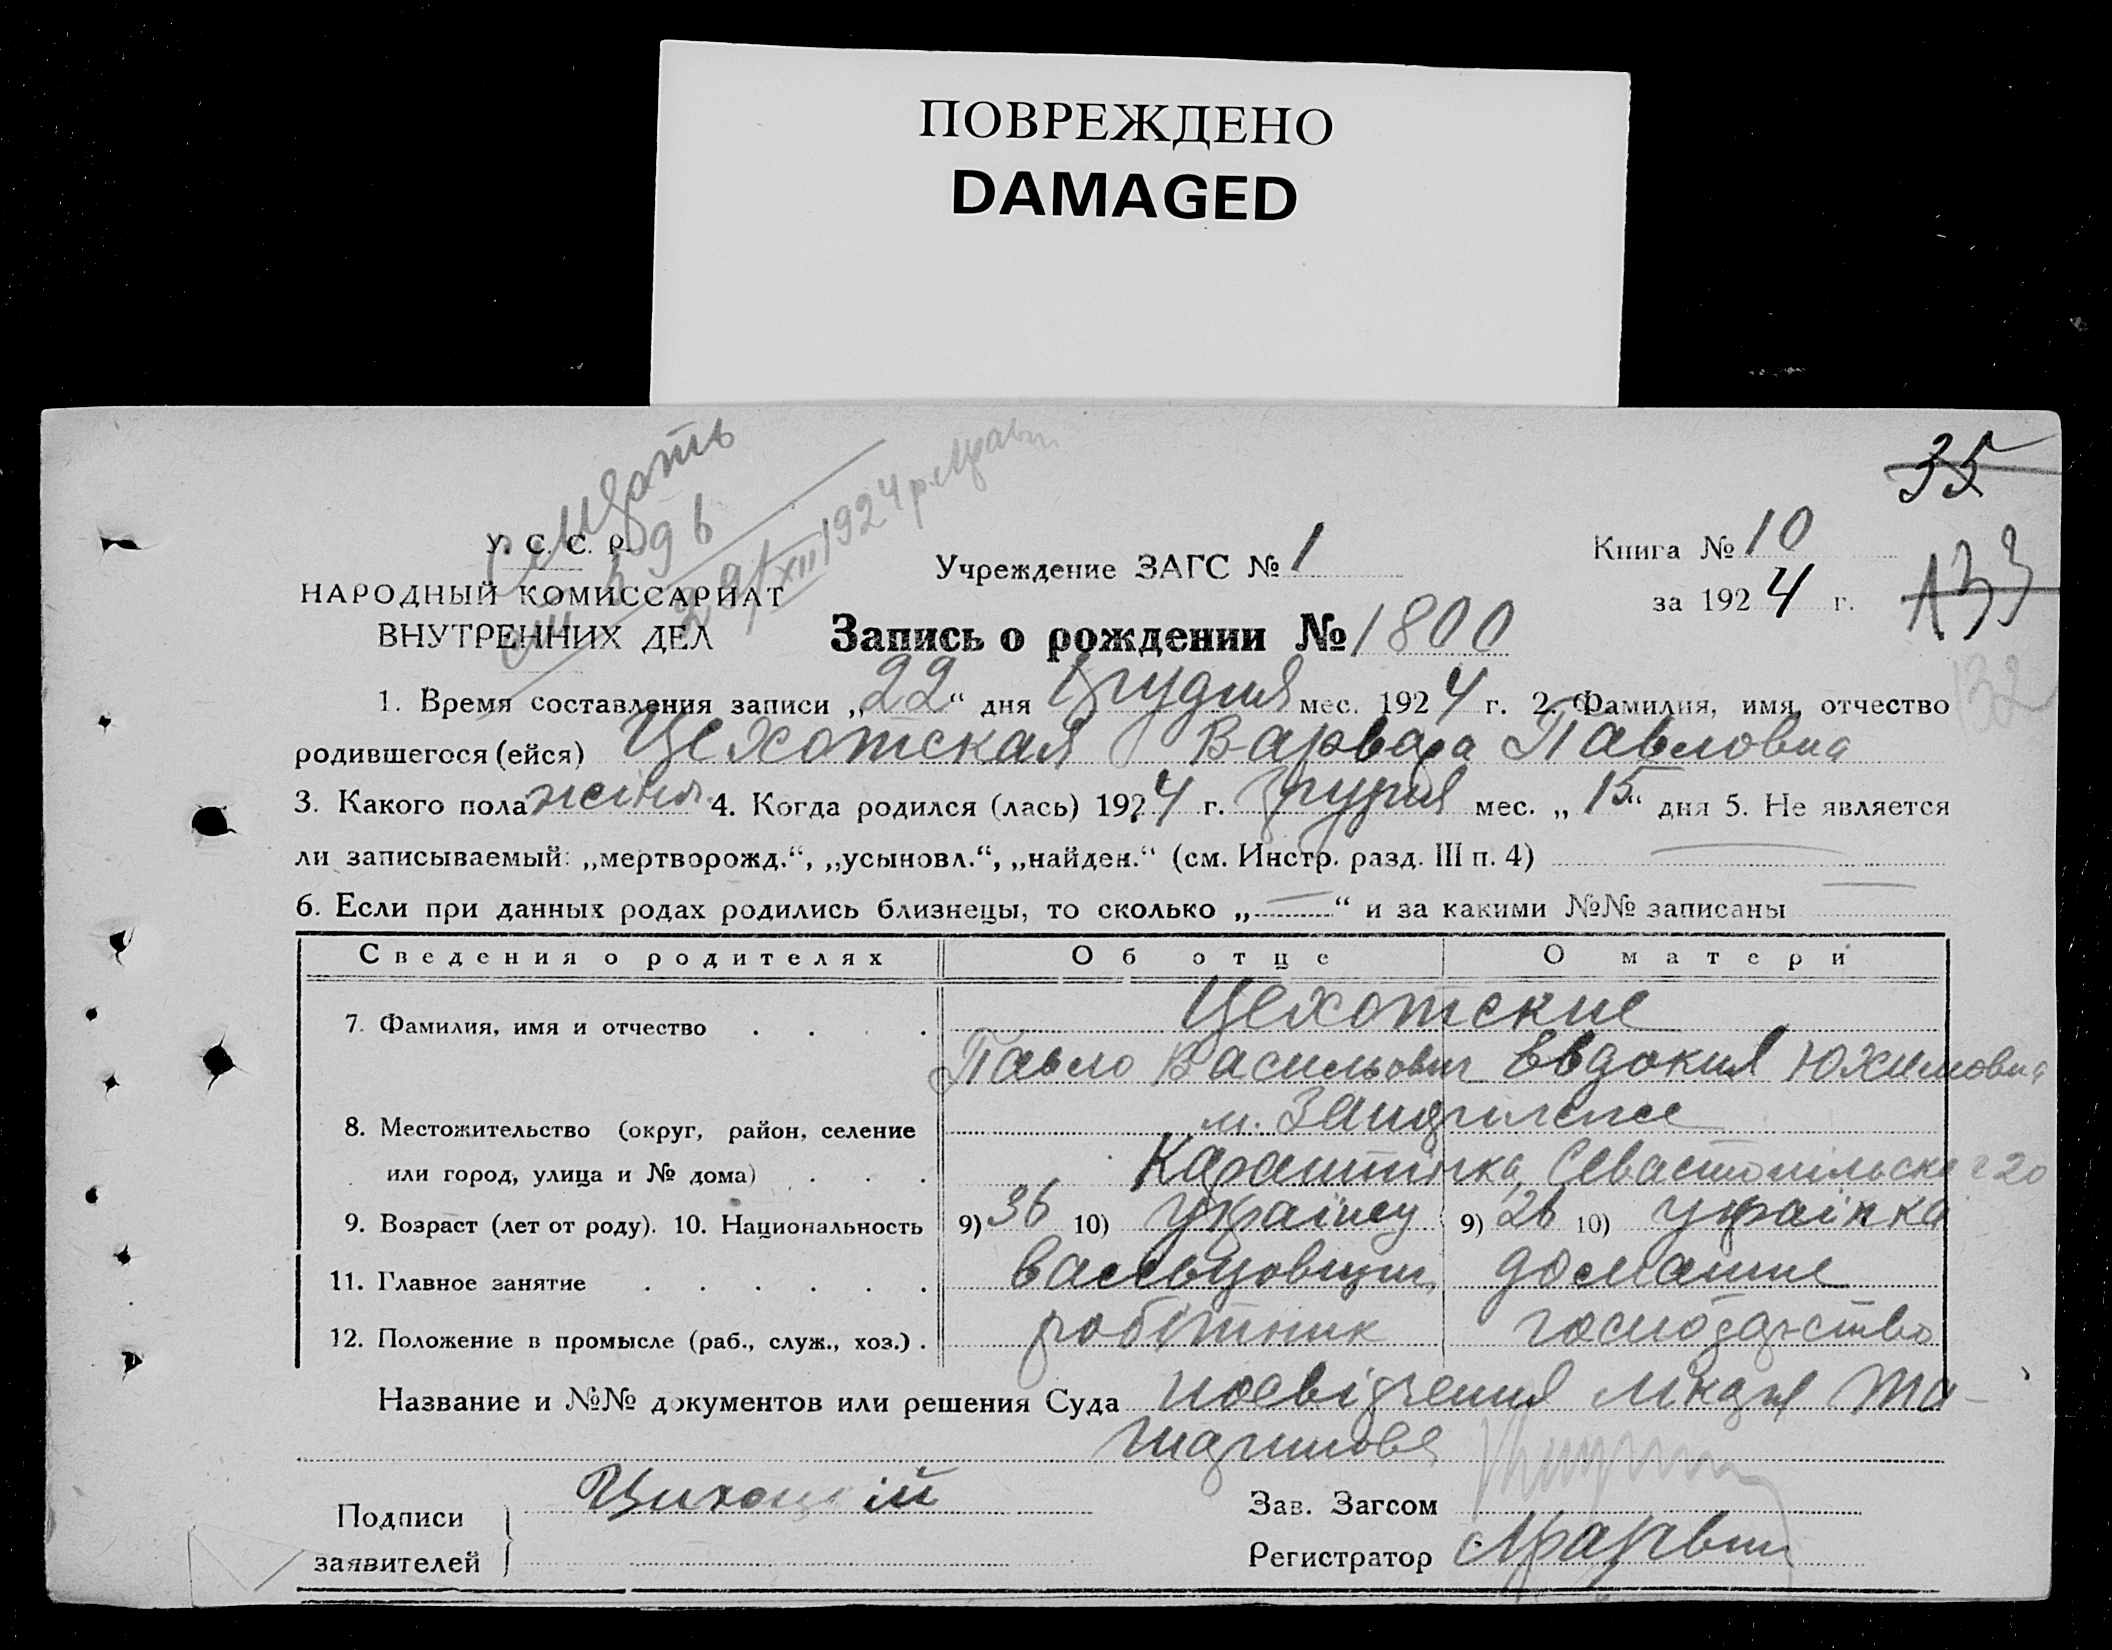 ПОВРЕЖДЕНО
DAMAGED
35
У. С. С. Р.
1924 р.
Учреждение ЗАГС № 1
Книга № 10
НАРОДНЫЙ КОМИССАРИАТ
за 1924 г.
133
ВНУТРЕННИХ ДЕЛ
Запись о рождении № 1800
132
1. Время составления записи „22“ дня Грудня мес. 1924 г. 2. Фамилия, имя, отчество
родившегося (ейся) Цехотская Варвара Павловна
3. Какого пола жіноч. 4. Когда родился (лась) 1924 г. Грудня мес. „15“ дня 5. Не является
ли записываемый: „мертворожд.“, „усыновл.“, „найден.“ (см. Инстр. разд. III п. 4) —
6. Если при данных родах родились близнецы, то сколько „—“ и за какими №№ записаны —
Сведения о родителях Об отце О матери
7. Фамилия, имя и отчество . . . . Цехотские
Павло Васильович Евдокия Юхимовна
8. Местожительство (округ, район, селение м.
или город, улица и № дома) . . . Севастопільска 20
9. Возраст (лет от роду). 10. Национальность 9) 36 10) Українец 9) 26 10) Українка
11. Главное занятие . . . . . . вальцовщик домашне
12. Положение в промысле (раб., служ., хоз.) . робітник господарство
Название и №№ документов или решения Суда посвідчення
Подписи
заявителей
Зав. Загсом
Регистратор